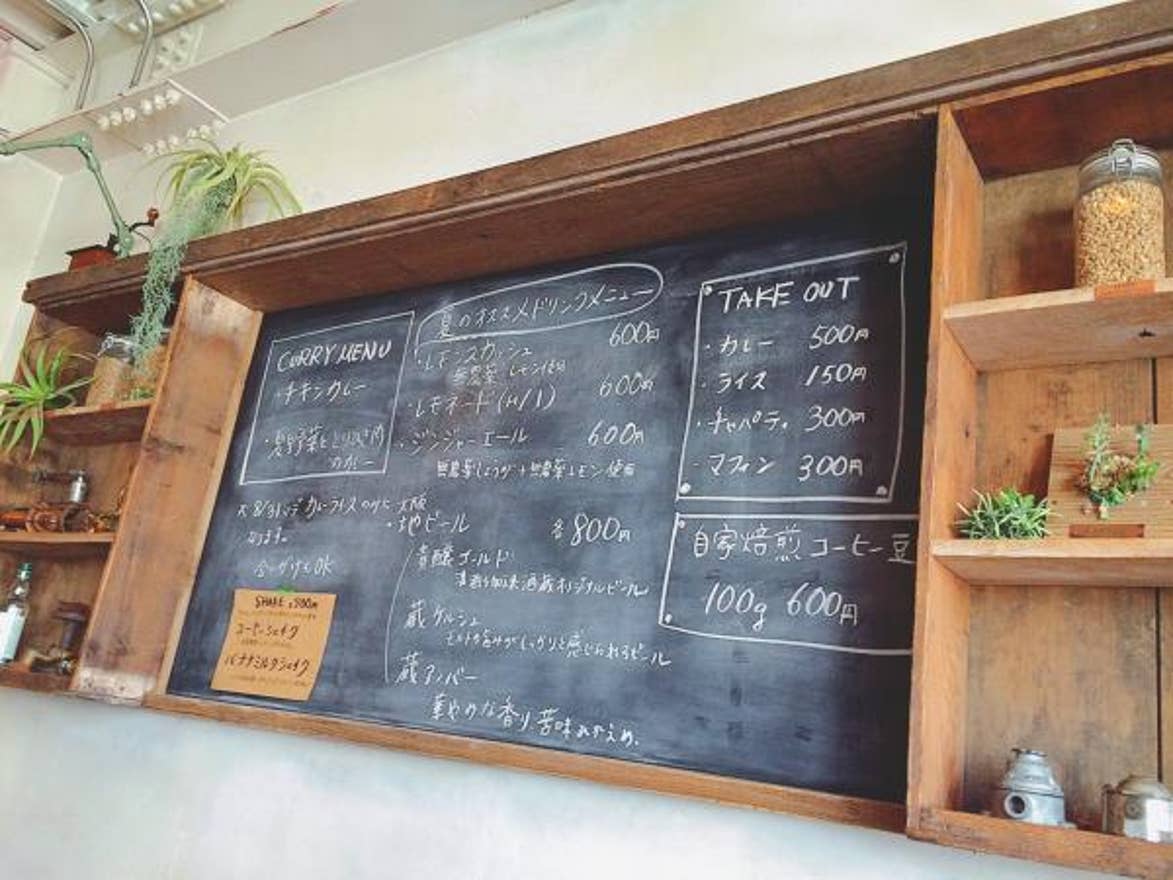 CURRY MENU
・チキンカレー
・夏野菜ととりひき肉
のカレー
合いがけもOK
SHAKE
コーヒーシェイク
バナナミルクシェイク
夏のオススメドリンクメニュー
・レモンスカッシュ 600円
無農薬レモン使用
・レモネード(H/I) 600円
・ジンジャーエール 600円
無農薬しょうが+無農薬レモン使用
・地ビール 各800円
ゴールド
オリジナルビール
蔵ケルシュ
モルトの旨みがしっかりと感じられるビール
蔵アンバー
華やかな香り 苦味ひかえめ。
TAKE OUT
・カレー 500円
・ライス 150円
・チャパティ 300円
・マフィン 300円
自家焙煎コーヒー豆
100g 600円